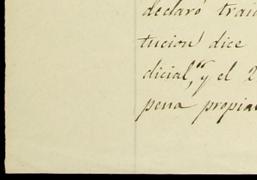 declaró trai
tución dice
dicial, y el 2
pena propia